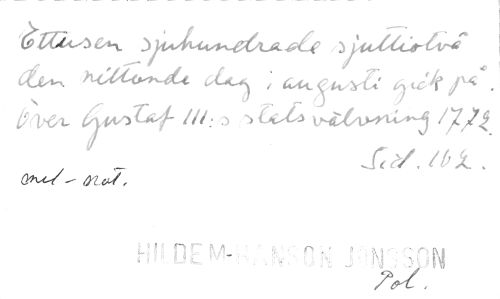 Ettusen sjuhundrade sjuttiotvå
den nittonde dag i augusti gick på.
Över Gustaf III:s statsvälvning 1772.
Sid. 162.
mel-not.
HILDEM-HANSON JONSSON
Pol.